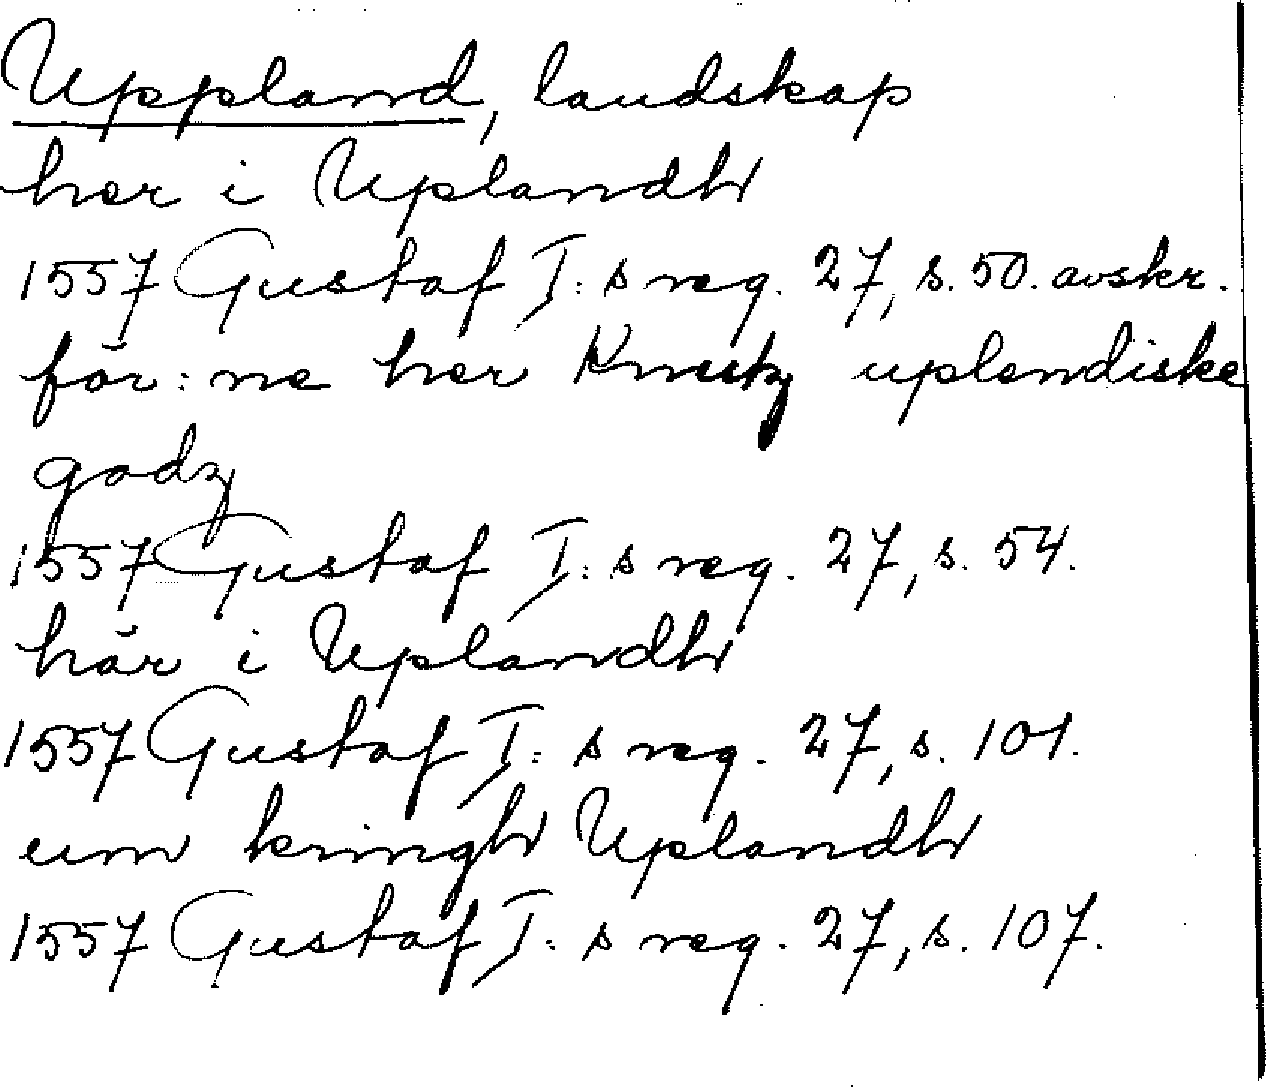 Uppland, landskap
her i Uplandh
1557 Gustaf I:s reg. 27, s. 50. avskr.
för:ne her Knutz uplendiske
godz
1557 Gustaf I:s reg. 27, s. 54.
här i Uplandh
1557 Gustaf I:s reg. 27, s. 101.
um kringh Uplandh
1557 Gustaf I:s reg. 27, s. 107.